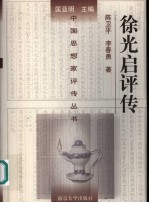 匡亚明 主编
中国思想家评传丛书
徐光启评传
陈卫平 李春勇 著
南京大学出版社